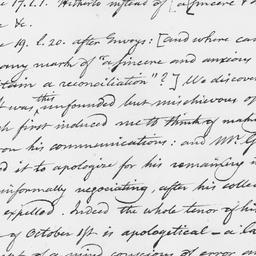 17. l. 1. Hitherto instead of [a sincere &
&c.
19. l. 20. after Envoys: [and where can
any mark of "a sincere and anxious
tain a reconciliation"?] We discover
t was this unfounded but mischievous of
h first induced me to think of maki
on his communications: and Mr. G
d it to apologize for his remaining i
informally negociating, after his colle
expelled. Indeed the whole tenor of hi
of October 1st is apologetical — a la
of a mind conscious of error an